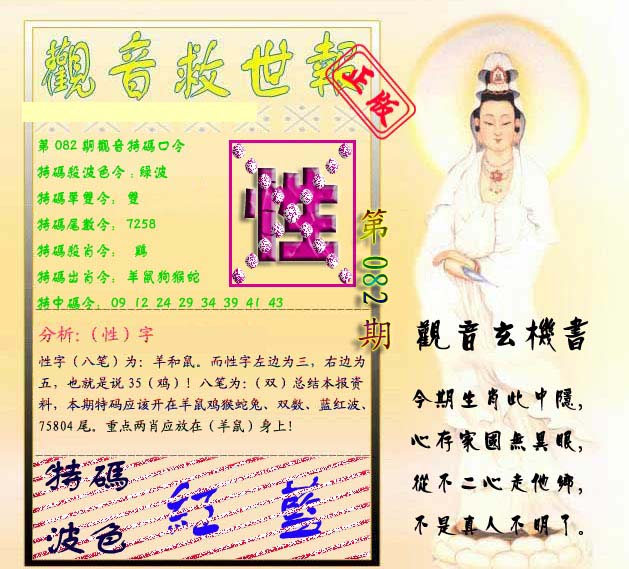 觀音救世報
正版
第 082 期觀音特碼口令
特碼殺波色令：綠波
特碼單雙令： 雙
特碼尾數令： 7258
特碼殺肖令： 鷄
特碼出肖令： 羊鼠狗猴蛇
特中碼令： 09 12 24 29 34 39 41 43
性
第 082 期
分析:（性）字
性字（八笔）为：羊和鼠。而性字左边为三，右边为
五，也就是说 35（鸡）！八笔为:（双）总结本报资
料，本期特码应该开在羊鼠鸡猴蛇兔、双数、蓝红波、
75804 尾。重点两肖应放在（羊鼠）身上！
特碼
波色
紅 藍
觀音玄機書
今期生肖此中隱，
心存家國無異眼，
從不二心走他鄉，
不是真人不明了。